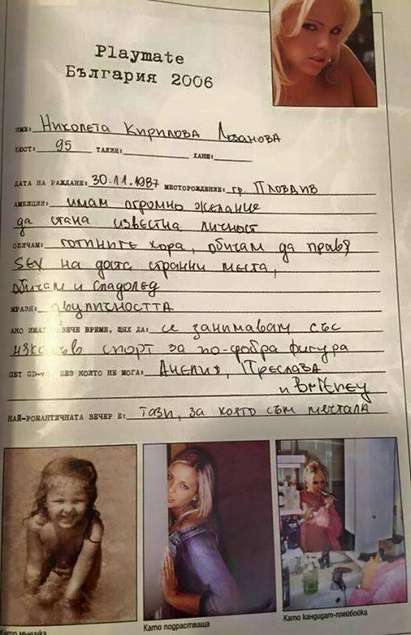 Playmate
България 2006
ИМЕ: Николета Кирилова Лозанова
БЮСТ: 95 ТАЛИЯ: ХАНШ:
ДАТА НА РАЖДАНЕ: 30.11.1987 МЕСТОРОЖДЕНИЕ: гр Пловдив
АМБИЦИИ: имам огромно желание
да стана известна личност
ОБИЧАМ: готините хора, обичам да правя
SEX на доста странни места,
обичам и сладолед
МРАЗЯ: двуличността
АКО ИМАХ ПОВЕЧЕ ВРЕМЕ, ЩЯХ ДА: се занимавам със
някакъв спорт за по-добра фигура
ПЕТ CD-та БЕЗ КОИТО НЕ МОГА: Анелия, Преслава
и Britney
НАЙ-РОМАНТИЧНАТА ВЕЧЕР Е: Тази, за която съм мечтала
Като мъничка
Като подрастваща
Като кандидат-плейбойка